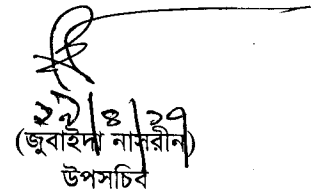 ২৯|৪|১৭
(জুবাইদা নাসরীন)
উপসচিব